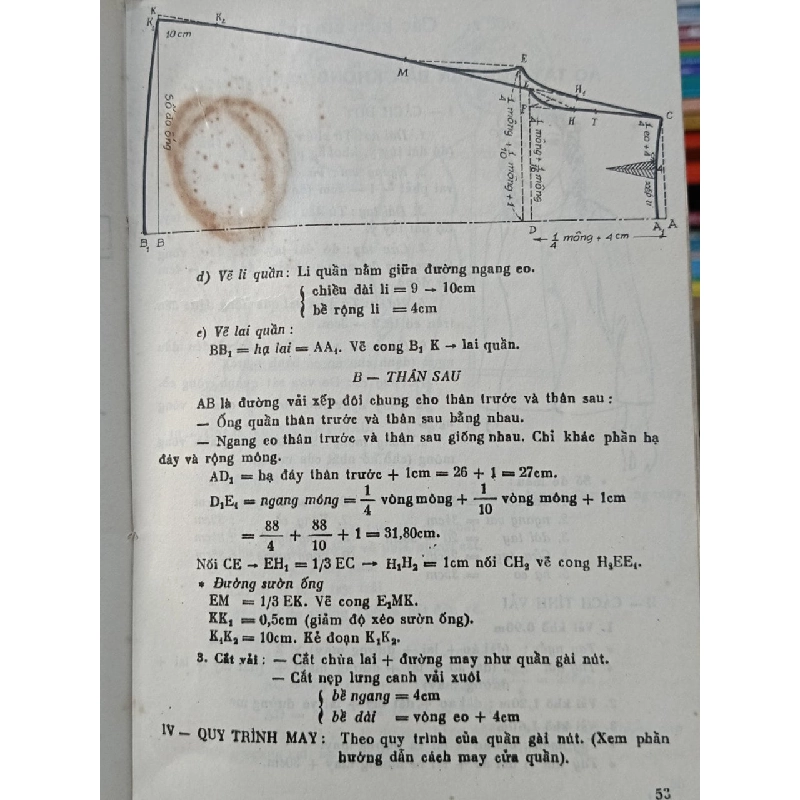 K
K₁
K₂
10cm
M
E
H₁
H
I
C
Số đo ống
1/4 mông + 1/10 mông + 1
1/4 mông + 1/10 mông
1/4 eo + 4
xếp li
B₁ B
D
A₁ A
1/4 mông + 4cm
d) Vẽ li quần: Li quần nằm giữa đường ngang eo.
chiều dài li = 9 → 10cm
bề rộng li = 4cm
e) Vẽ lai quần :
BB₁ = hạ lai = AA₁. Vẽ cong B₁ K → lai quần.
B — THÂN SAU
AB là đường vải xếp đôi chung cho thân trước và thân sau :
— Ống quần thân trước và thân sau bằng nhau.
— Ngang eo thân trước và thân sau giống nhau. Chỉ khác phần hạ
đáy và rộng mông.
AD₁ = hạ đáy thân trước + 1cm = 26 + 1 = 27cm.
D₁E₁ = ngang mông = 1/4 vòng mông + 1/10 vòng mông + 1cm
= 88/4 + 88/10 + 1 = 31,80cm.
Nối CE → EH₁ = 1/3 EC → H₁H₂ = 1cm nối CH₂ vẽ cong H₂EE₁.
* Đường sườn ống
EM = 1/3 EK. Vẽ cong E₂MK.
KK₁ = 0,5cm (giảm độ xéo sườn ống).
K₁K₂ = 10cm. Kẻ đoạn K₁K₂.
3. Cắt vải : — Cắt chừa lai + đường may như quần gài nút.
— Cắt nẹp lưng canh vải xuôi
bề ngang = 4cm
bề dài = vòng eo + 4cm
IV — QUY TRÌNH MAY : Theo quy trình của quần gài nút. (Xem phần
hướng dẫn cách may cửa quần).
53